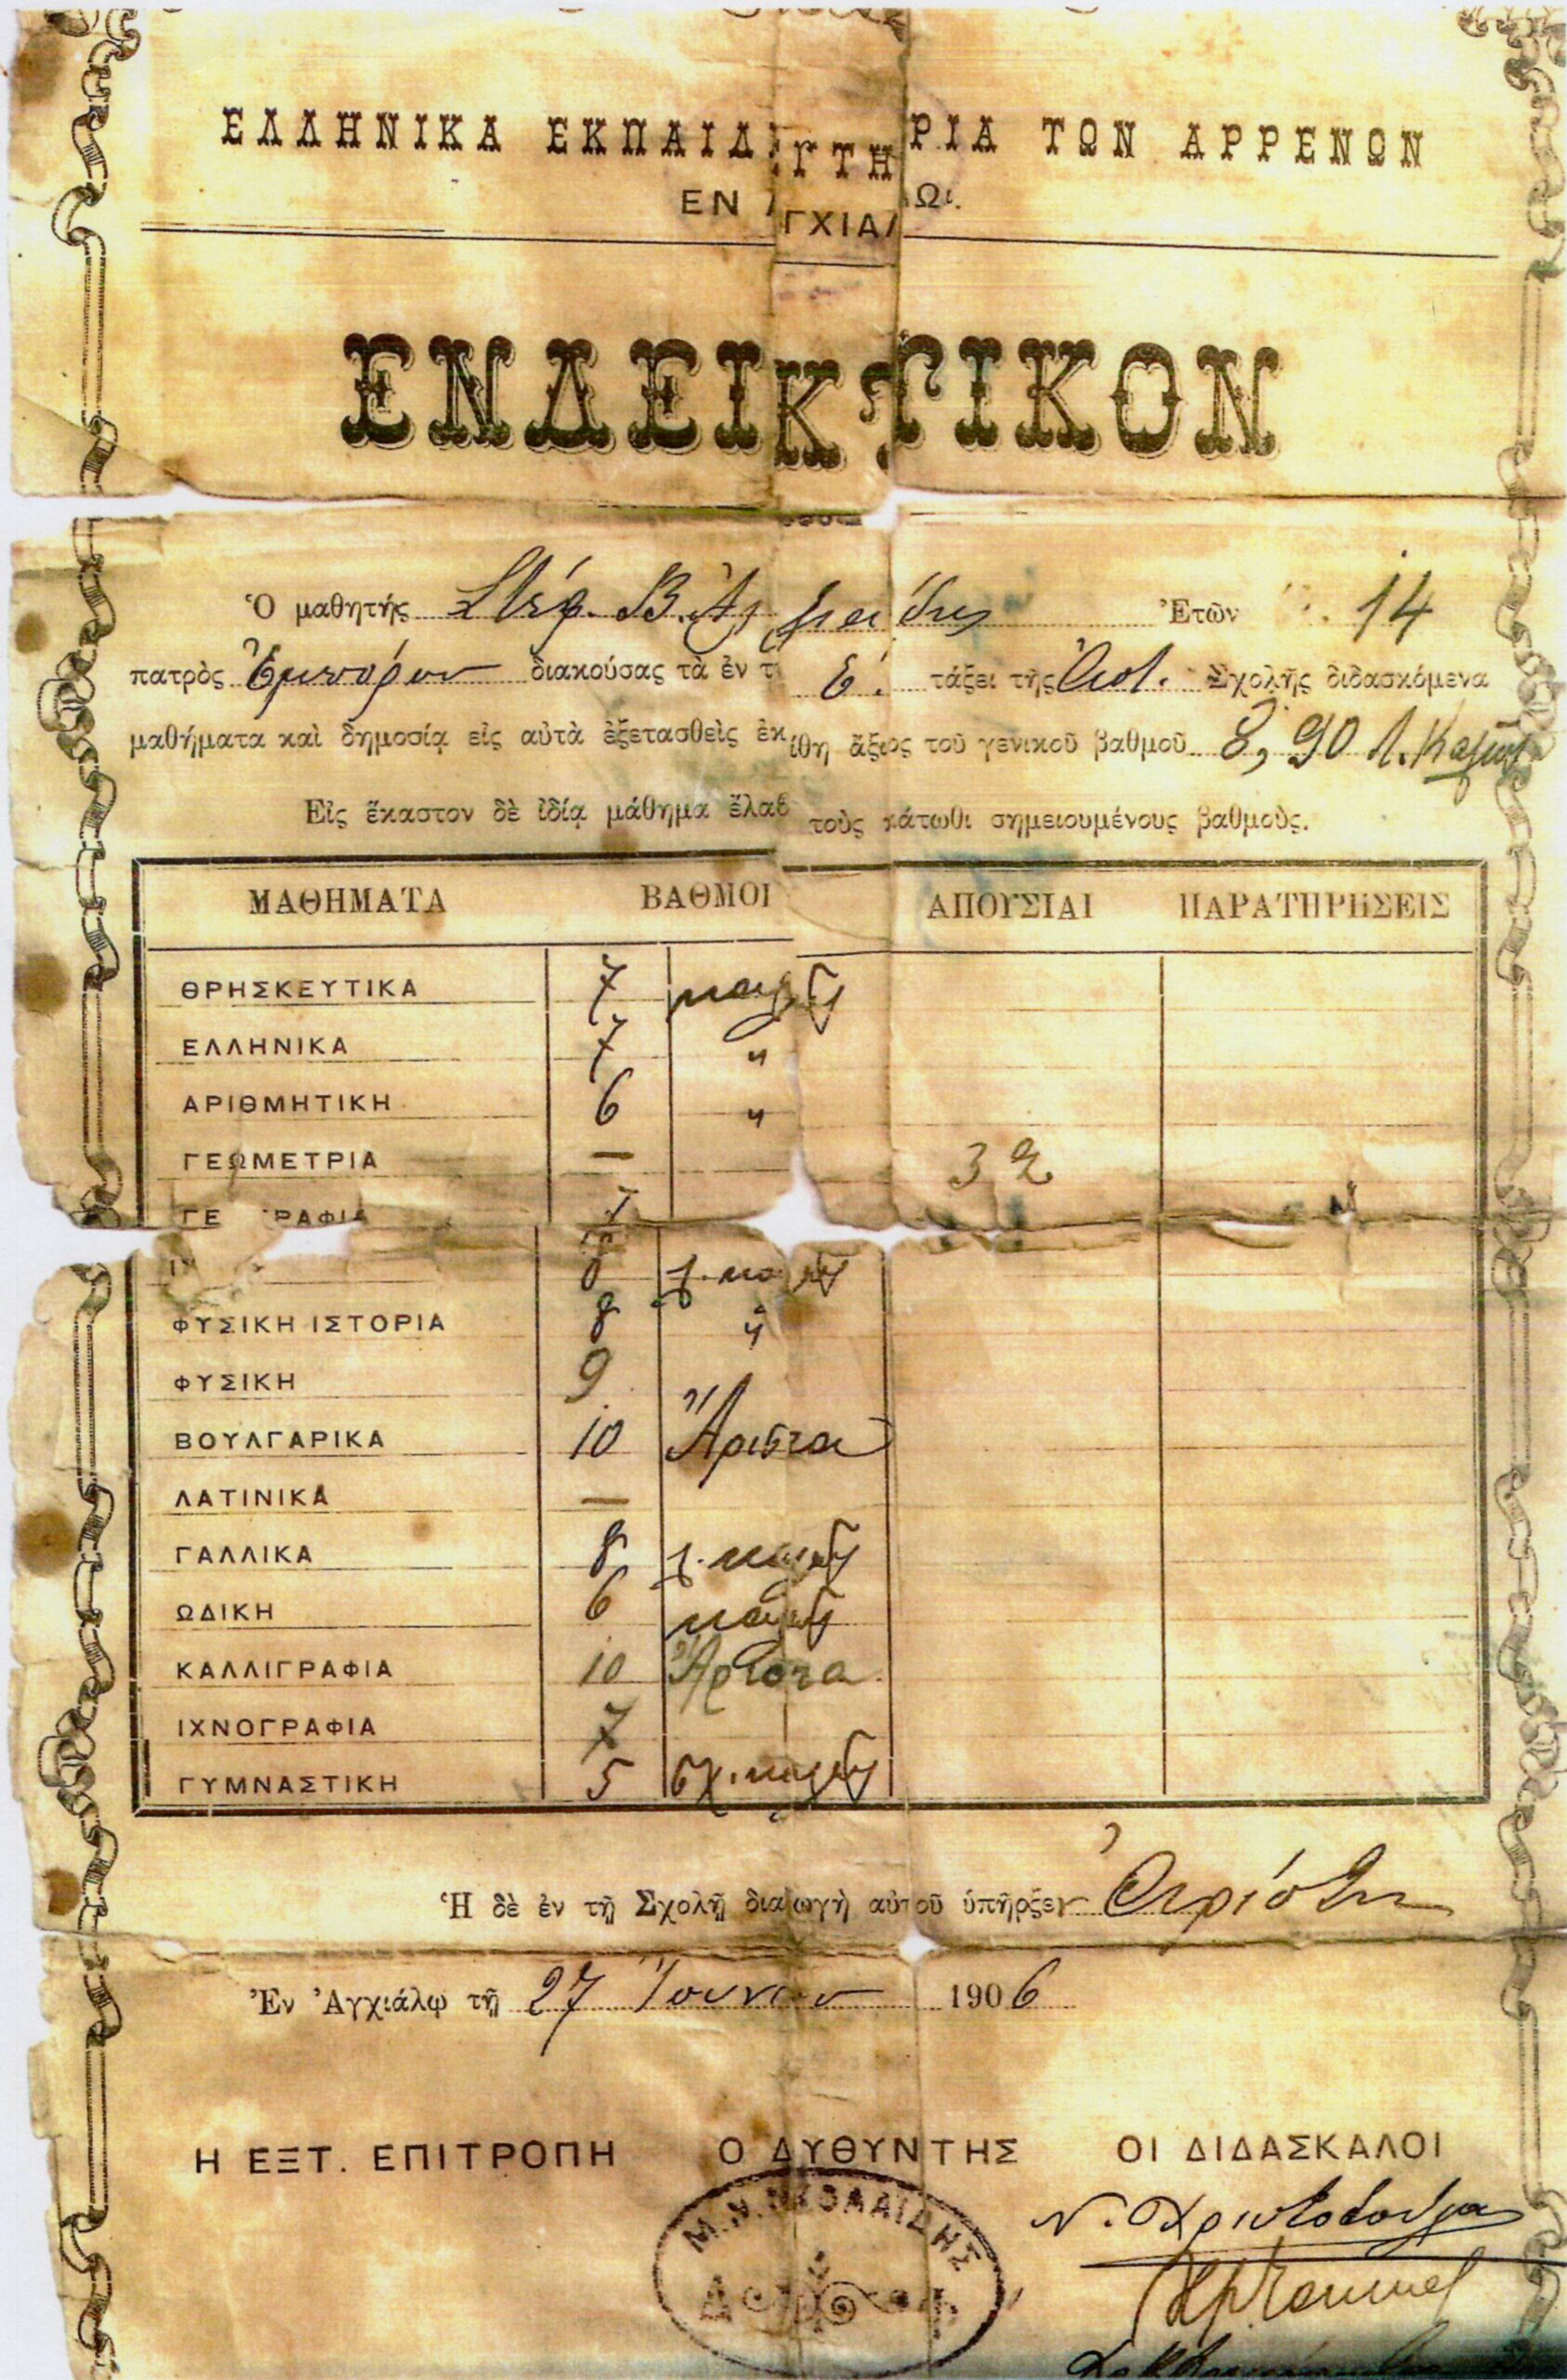 ΕΛΛΗΝΙΚΑ ΕΚΠΑΙΔΕΥΤΗΡΙΑ ΤΩΝ ΑΡΡΕΝΩΝ
ΕΝ ΑΓΧΙΑΛΩι.
ΕΝΔΕΙΚΤΙΚΟΝ
Ὁ μαθητής Στέφ. Β. Ἐτῶν 14
πατρὸς Ἐμπόρου διακούσας τὰ ἐν τ Ε΄. τάξει τῆς Ἀστ. Σχολῆς διδασκόμενα
μαθήματα καὶ δημοσίᾳ εἰς αὐτὰ ἐξετασθεὶς ἐκρίθη ἄξιος τοῦ γενικοῦ βαθμοῦ 8,90 λ. καλῶς
Εἰς ἕκαστον δὲ ἰδίᾳ μάθημα ἔλαβ τοὺς κάτωθι σημειουμένους βαθμοὺς.
ΜΑΘΗΜΑΤΑ ΒΑΘΜΟΙ ΑΠΟΥΣΙΑΙ ΠΑΡΑΤΗΡΗΣΕΙΣ
ΘΡΗΣΚΕΥΤΙΚΑ 7 καλῶς
ΕΛΛΗΝΙΚΑ 7 "
ΑΡΙΘΜΗΤΙΚΗ 6 "
ΓΕΩΜΕΤΡΙΑ — 32
ΓΕΩΓΡΑΦΙΑ 7
8 λ. καλῶς
ΦΥΣΙΚΗ ΙΣΤΟΡΙΑ 8 "
ΦΥΣΙΚΗ 9
ΒΟΥΛΓΑΡΙΚΑ 10 Ἄριστα
ΛΑΤΙΝΙΚΑ —
ΓΑΛΛΙΚΑ 8 λ. καλῶς
ΩΔΙΚΗ 6 καλῶς
ΚΑΛΛΙΓΡΑΦΙΑ 10 Ἄριστα
ΙΧΝΟΓΡΑΦΙΑ 7
ΓΥΜΝΑΣΤΙΚΗ 5 σχ. καλῶς
Ἡ δὲ ἐν τῇ Σχολῇ διαγωγὴ αὐτοῦ ὑπῆρξεν Ἀρίστη
Ἐν Ἀγχιάλῳ τῇ 27 Ἰουνίου 1906
Η ΕΞΤ. ΕΠΙΤΡΟΠΗ Ο ΔΥΘΥΝΤΗΣ ΟΙ ΔΙΔΑΣΚΑΛΟΙ
Μ. Ν. ΝΙΚΟΛΑΪΔΗΣ
Δ Φ
Ν. Χριστοδούλου